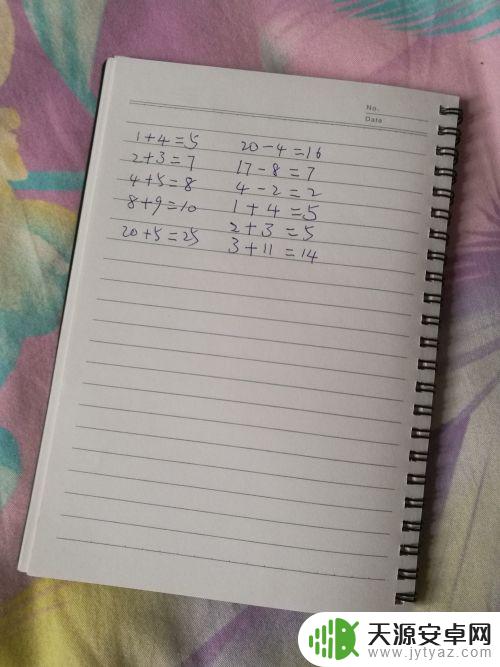 No.
Date
1+4=5 20-4=16
2+3=7 17-8=7
4+5=8 4-2=2
8+9=10 1+4=5
20+5=25 2+3=5
3+11=14
天源安卓网
www.jytyaz.com